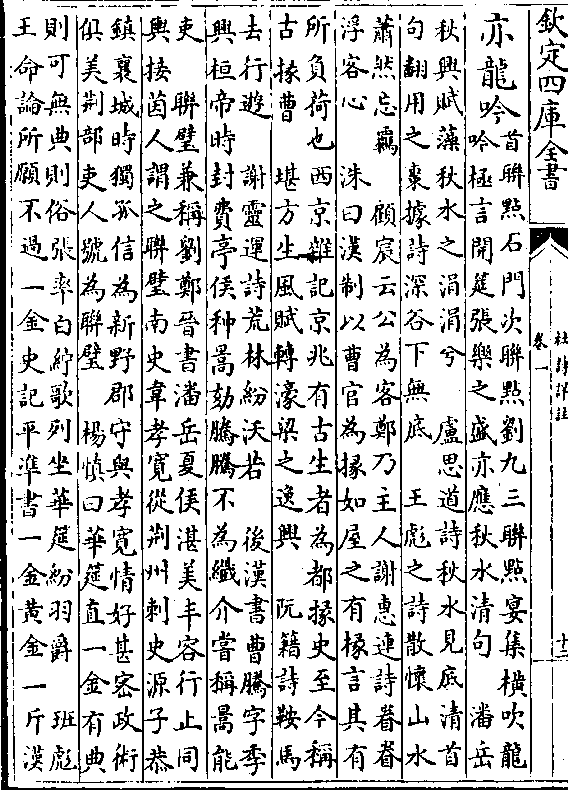 欽定四庫全書
杜詩詳註
卷一
十二
亦龍吟
首聯點石門次聯點劉九三聯點宴集橫吹龍
吟極言開筵張樂之盛亦應秋水清句　潘岳
秋興賦藻秋水之涓涓兮　盧思道詩秋水見底清首
句翻用之裵據詩深谷下無底　王彪之詩散懷山水
蕭然忘羈　顧宸云公為客鄭乃主人謝惠連詩眷眷
浮客心　洙曰漢制以曹官為掾如屋之有椽言其有
所負荷也西京雜記京兆有古生者為都掾史至今稱
古掾曹　堪方生風賦轉濠梁之逸興　阮籍詩鞍馬
去行遊　謝靈運詩荒林紛沃若　後漢書曹騰字季
興桓帝時封費亭侯种暠劾騰騰不為纖介嘗稱暠能
吏　聯璧兼稱劉鄭晉書潘岳夏侯湛美丰容行止同
輿接茵人謂之聯璧南史韋孝寬從荆州刺史源子恭
鎮襄城時獨孤信為新野郡守與孝寬情好甚宻政術
俱美荆部吏人號為聯璧　楊慎曰華筵直一金有典
則可無典則俗張率白紵歌列坐華筵紛羽爵　班彪
王命論所願不過一金史記平準書一金黄金一斤漢